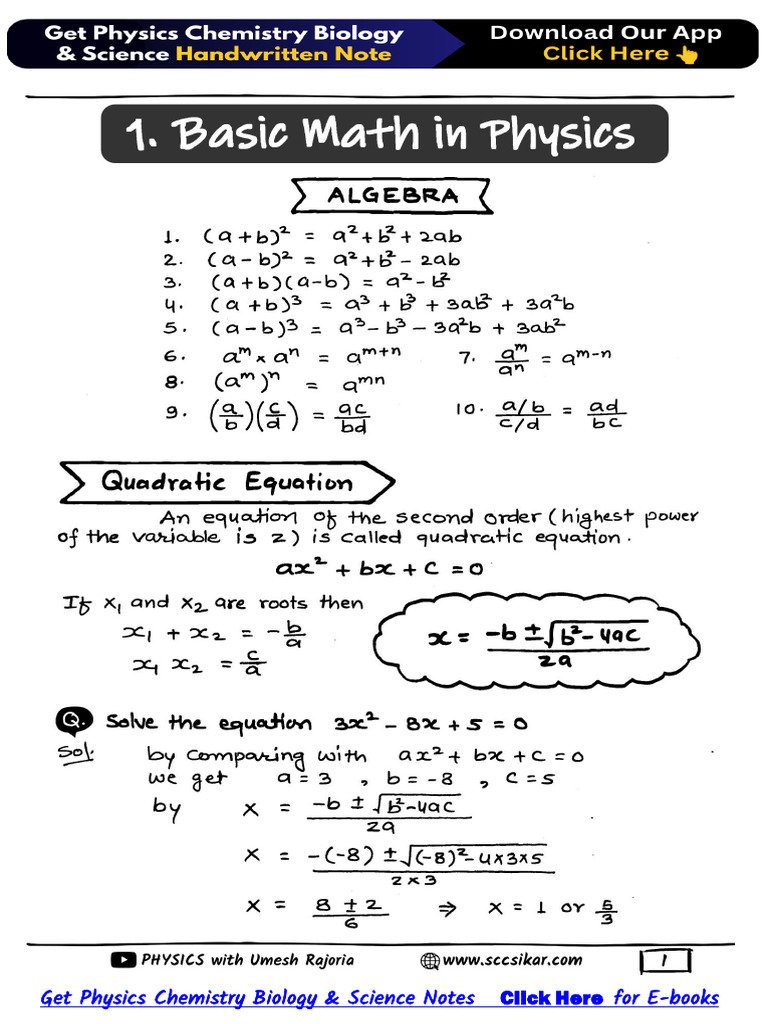 Get Physics Chemistry Biology
& Science Handwritten Note
Download Our App
Click Here 👆
1. Basic Math in Physics
ALGEBRA
1. (a+b)² = a²+b²+2ab
2. (a-b)² = a²+b²-2ab
3. (a+b)(a-b) = a²-b²
4. (a+b)³ = a³ + b³ + 3ab² + 3a²b
5. (a-b)³ = a³-b³-3a²b + 3ab²
6. aᵐ × aⁿ = aᵐ⁺ⁿ 7. aᵐ/aⁿ = aᵐ⁻ⁿ
8. (aᵐ)ⁿ = aᵐⁿ
9. (a/b)(c/d) = ac/bd 10. (a/b)/(c/d) = ad/bc
Quadratic Equation
An equation of the second order (highest power
of the variable is 2) is called quadratic equation.
ax² + bx + c = 0
If x₁ and x₂ are roots then
x₁ + x₂ = -b/a
x₁ x₂ = c/a
x = (-b ± √(b²-4ac))/2a
Q. Solve the equation 3x² - 8x + 5 = 0
Sol: by comparing with ax² + bx + c = 0
we get a = 3 , b = -8 , c = 5
by x = (-b ± √(b²-4ac))/2a
x = (-(-8) ± √((-8)²-4×3×5))/(2×3)
x = (8 ± 2)/6 ⇒ x = 1 or 5/3
PHYSICS with Umesh Rajoria www.sccsikar.com 1
Get Physics Chemistry Biology & Science Notes Click Here for E-books